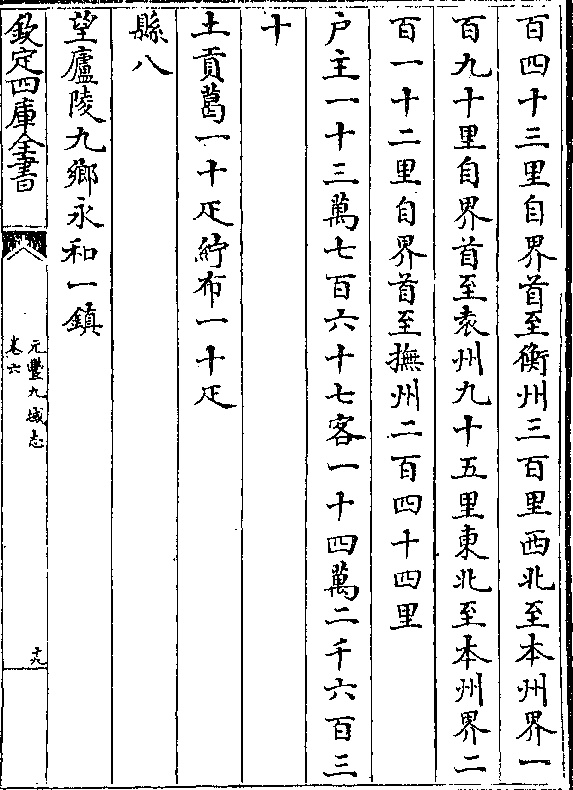 百四十三里自界首至衡州三百里西北至本州界一
百九十里自界首至袁州九十五里東北至本州界二
百一十二里自界首至撫州二百四十四里
户主一十三萬七百六十七客一十四萬二千六百三
十
土貢葛一十疋紵布一十疋
縣八
望廬陵九鄉永和一鎮
欽定四庫全書
元豐九域志
卷六
十九